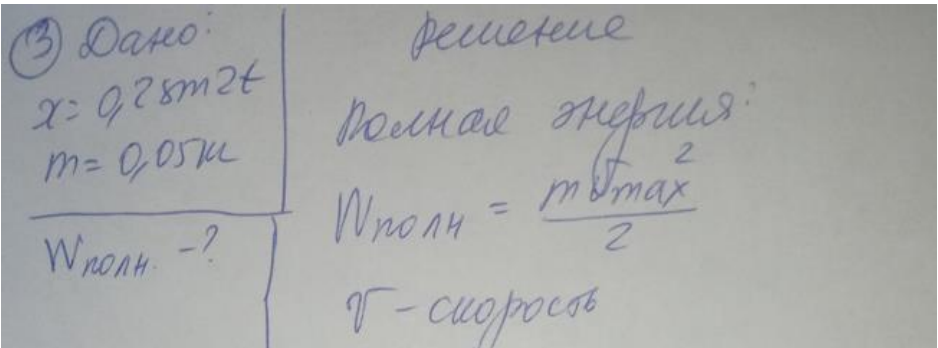 ③ Дано:
x = 0,28m2t
m = 0,05м
Wполн. - ?
Решение
Полная энергия:
Wполн = mVmax²/2
V - скорость